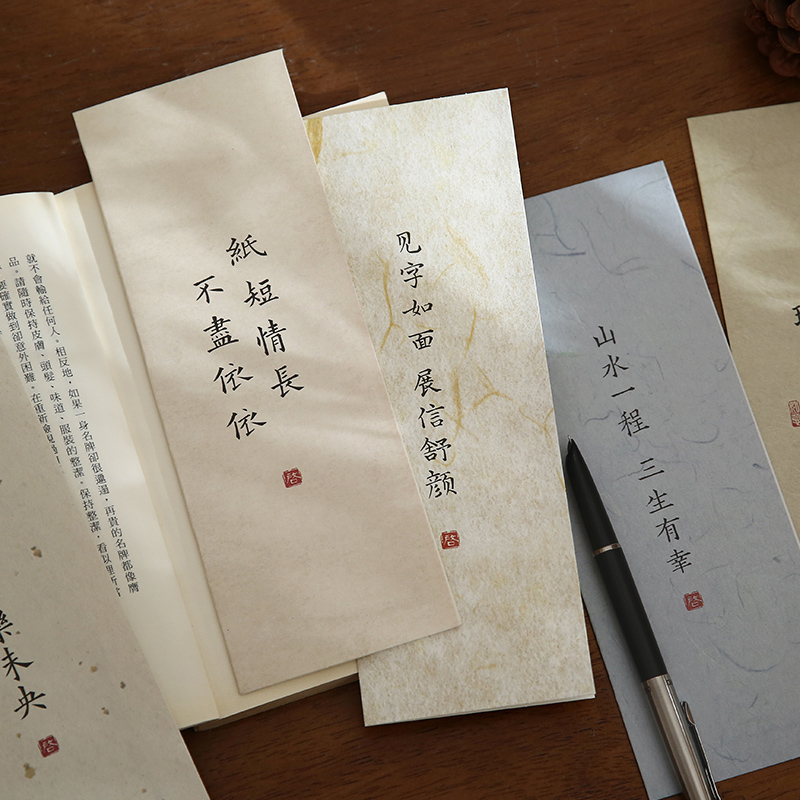 就不會輸給任何人。相反地，如果一身名牌卻很邋遢，再貴的名牌都像膺
品。請隨時保持皮膚、頭髮、味道、服裝的整潔。保持整潔，看似理所
要確實做到卻意外困難。在重新檢視
未央
紙短情長
不盡依依
见字如面 展信舒颜
山水一程 三生有幸